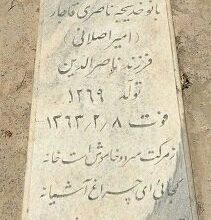 بانو خدیجه ناصری قاجار
(امیراصلانی)
فرزند ناصرالدین
تولد ۱۲۶۹
فوت ۱۳۶۳/۲/۸
ز مرگت سرد و خاموش است خانه
کجائی ای چراغ آشیانه